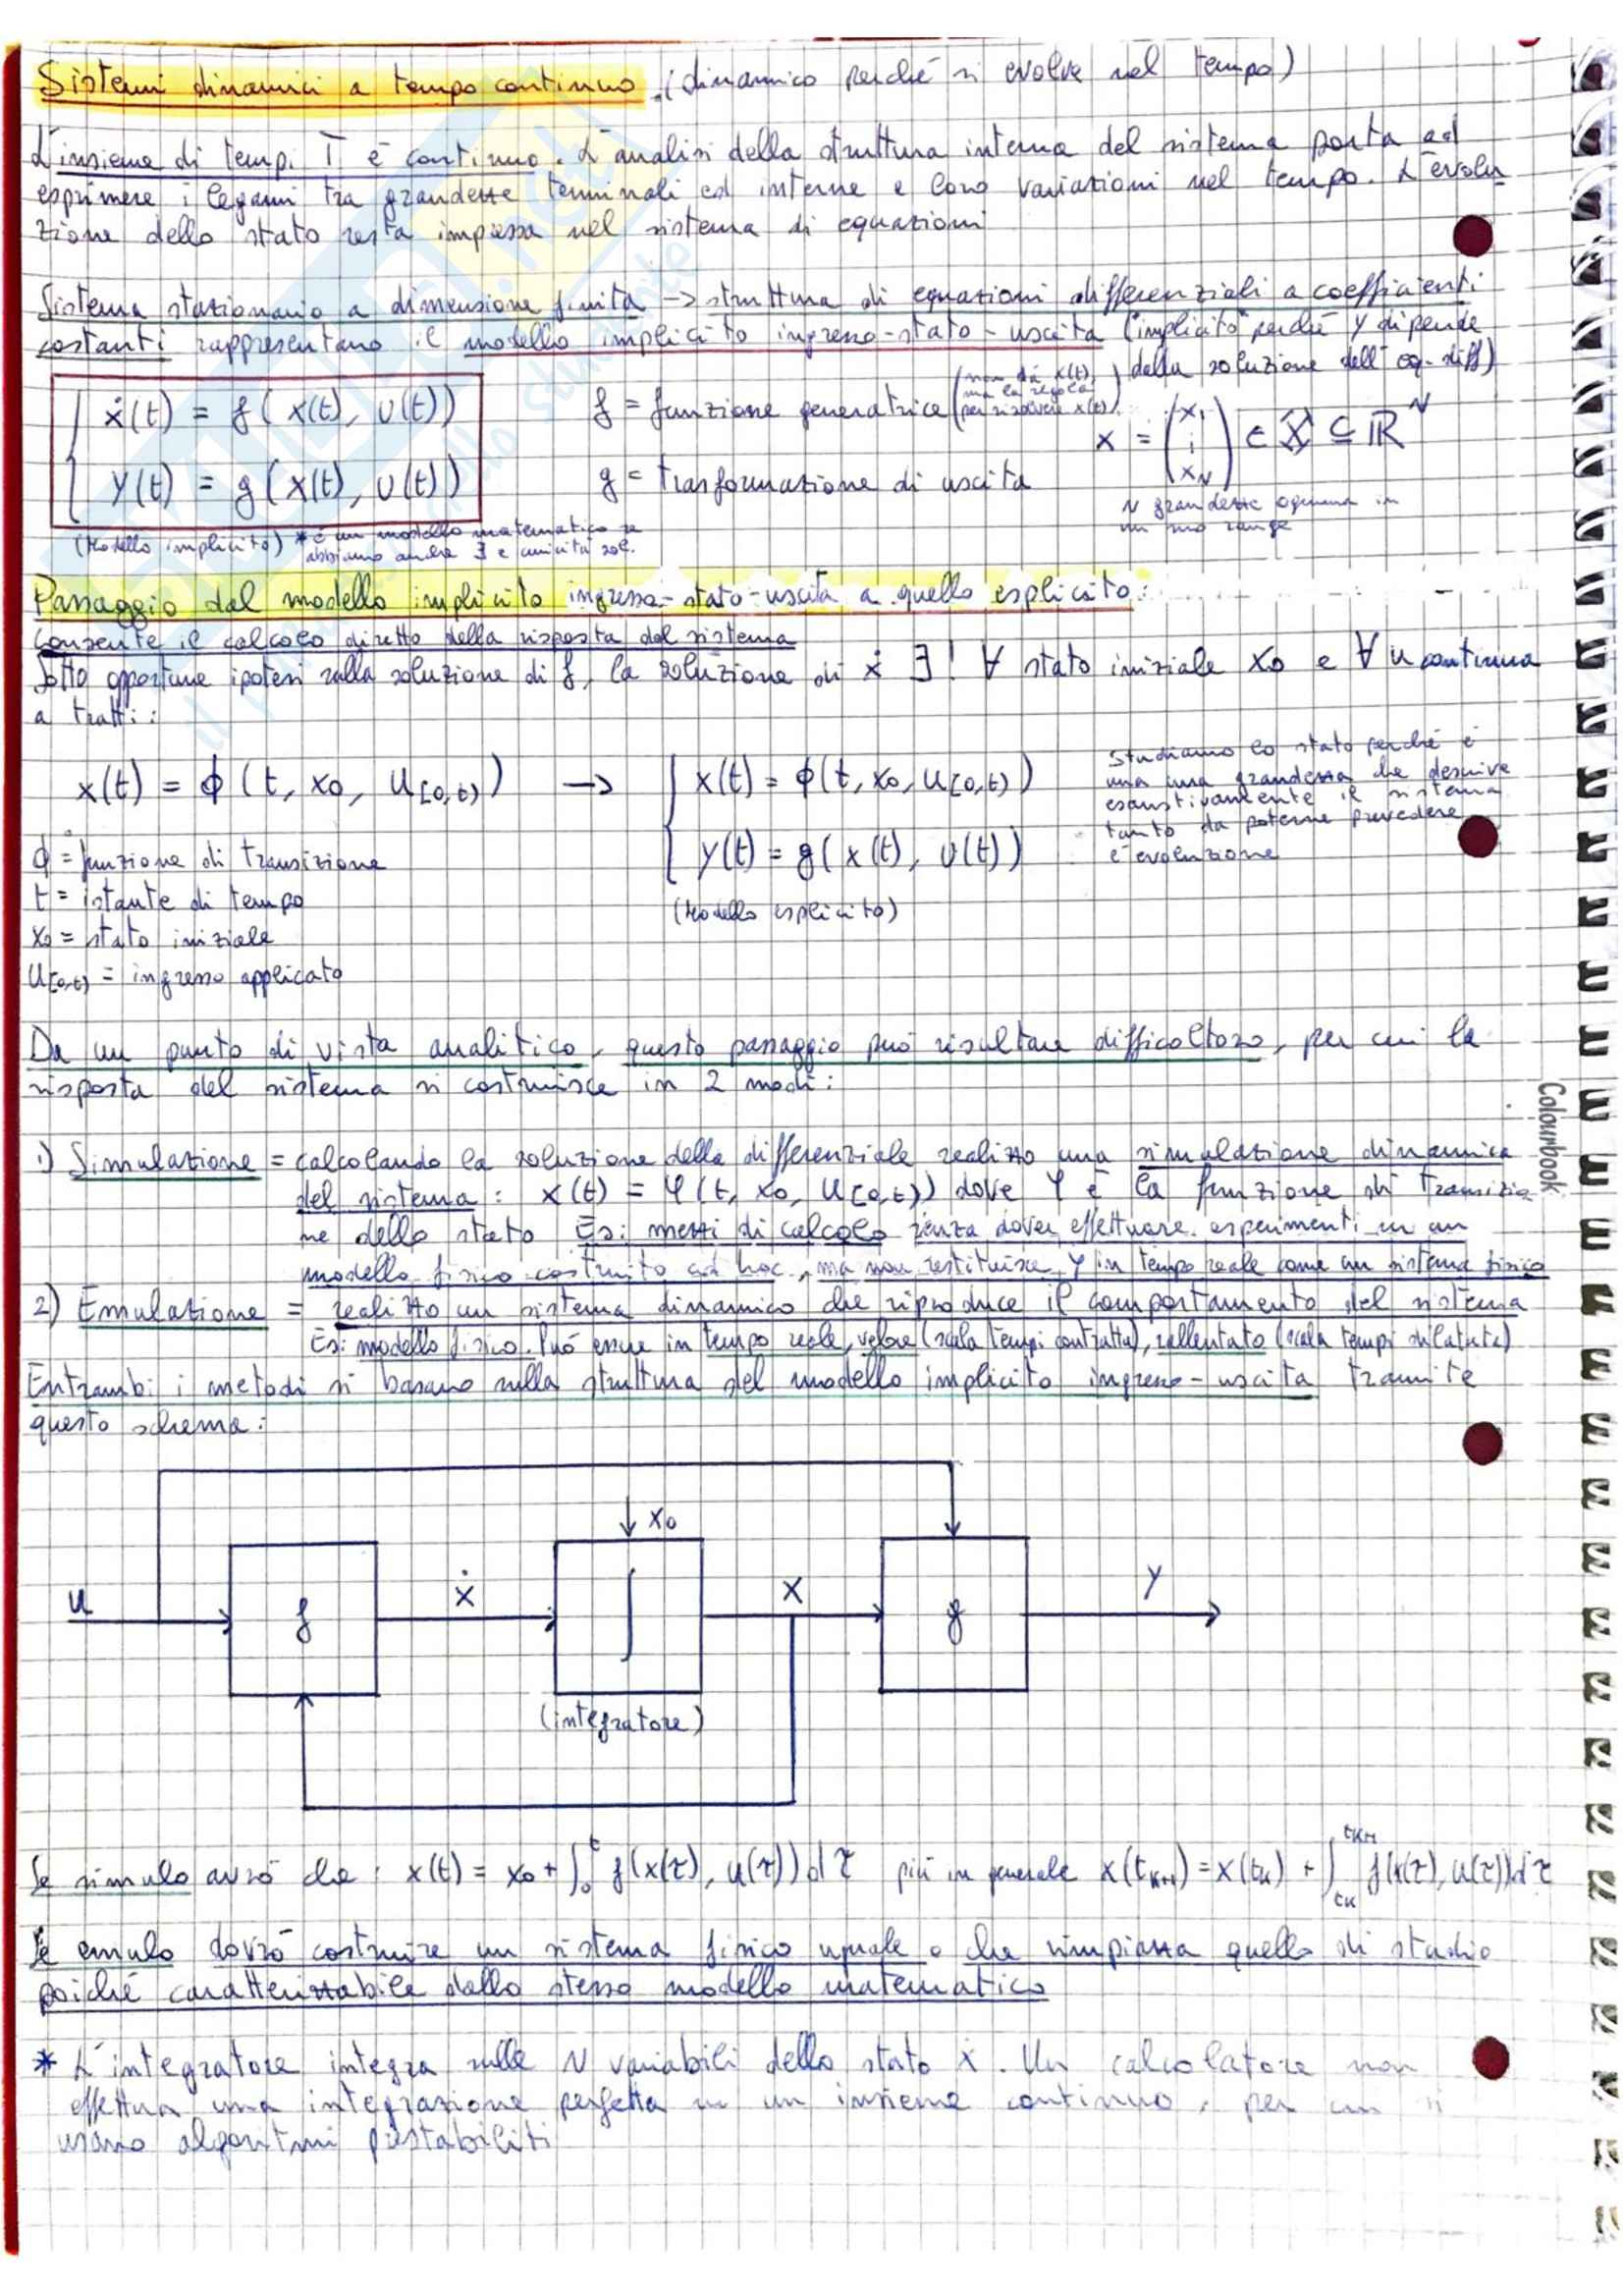 Sistemi dinamici a tempo continuo. (dinamico perché si evolve nel tempo)
L'insieme di tempi T è continuo. L'analisi della struttura interna del sistema porta ad
esprimere i legami tra grandezze terminali ed interne e loro variazioni nel tempo. L'evolu
zione dello stato resta impressa nel sistema di equazioni
Sistema stazionario a dimensione finita -> struttura di equazioni differenziali a coefficienti
costanti rappresentano il modello implicito ingresso-stato-uscita (implicito perché y dipende
della soluzione dell'eq. diff)
ẋ(t) = f(x(t), u(t))
f = funzione generatrice (non dà x(t), ma la regola per risolvere x(t))
x = (x1 ⋮ xN) ∈ X ⊆ ℝ^N
y(t) = g(x(t), u(t))
g = trasformazione di uscita
N grandezze ognuna in
un suo range
(Modello implicito) * è un modello matematico se
abbiamo anche ∃ e unicità sol.
Passaggio dal modello implicito ingresso-stato-uscita a quello esplicito:
consente il calcolo diretto della risposta del sistema
Sotto opportune ipotesi sulla soluzione di f, la soluzione di ẋ ∃! ∀ stato iniziale x0 e ∀ u continua
a tratti:
x(t) = ϕ(t, x0, u[0,t)) → { x(t) = ϕ(t, x0, u[0,t))
y(t) = g(x(t), u(t))
(Modello esplicito)
Studiamo lo stato perché è
una grandezza che descrive
esaustivamente il sistema
tanto da poterne prevedere
l'evoluzione
ϕ = funzione di transizione
t = istante di tempo
x0 = stato iniziale
u[0,t) = ingresso applicato
Da un punto di vista analitico, questo passaggio può risultare difficoltoso, per cui la
risposta del sistema si costruisce in 2 modi:
1) Simulazione = calcolando la soluzione della differenziale realizzo una simulazione dinamica
del sistema: x(t) = φ(t, x0, u[0,t)) dove φ è la funzione di transizio
ne dello stato Es: mezzi di calcolo senza dover effettuare esperimenti in un
modello fisico costruito ad hoc, ma non restituisce y in tempo reale come un sistema fisico
2) Emulazione = realizzo un sistema dinamico che riproduce il comportamento del sistema
Es: modello fisico. Può essere in tempo reale, veloce (scala tempi contratta), rallentato (scala tempi dilatata)
Entrambi i metodi si basano sulla struttura del modello implicito ingresso-uscita tramite
questo schema:
x0
u
f
ẋ
∫
x
g
y
(integratore)
Se simulo avrò che: x(t) = x0 + ∫0^t f(x(τ), u(τ))dτ più in generale x(tk+1) = x(tk) + ∫tk^tk+1 f(x(τ), u(τ))dτ
Se emulo dovrò costruire un sistema fisico uguale o che rimpiazza quello di studio
poiché caratterizzabile dallo stesso modello matematico
* L'integratore integra sulle N variabili dello stato ẋ. Un calcolatore non
effettua una integrazione perfetta su un insieme continuo, per cui si
usano algoritmi prestabiliti
Colourbook